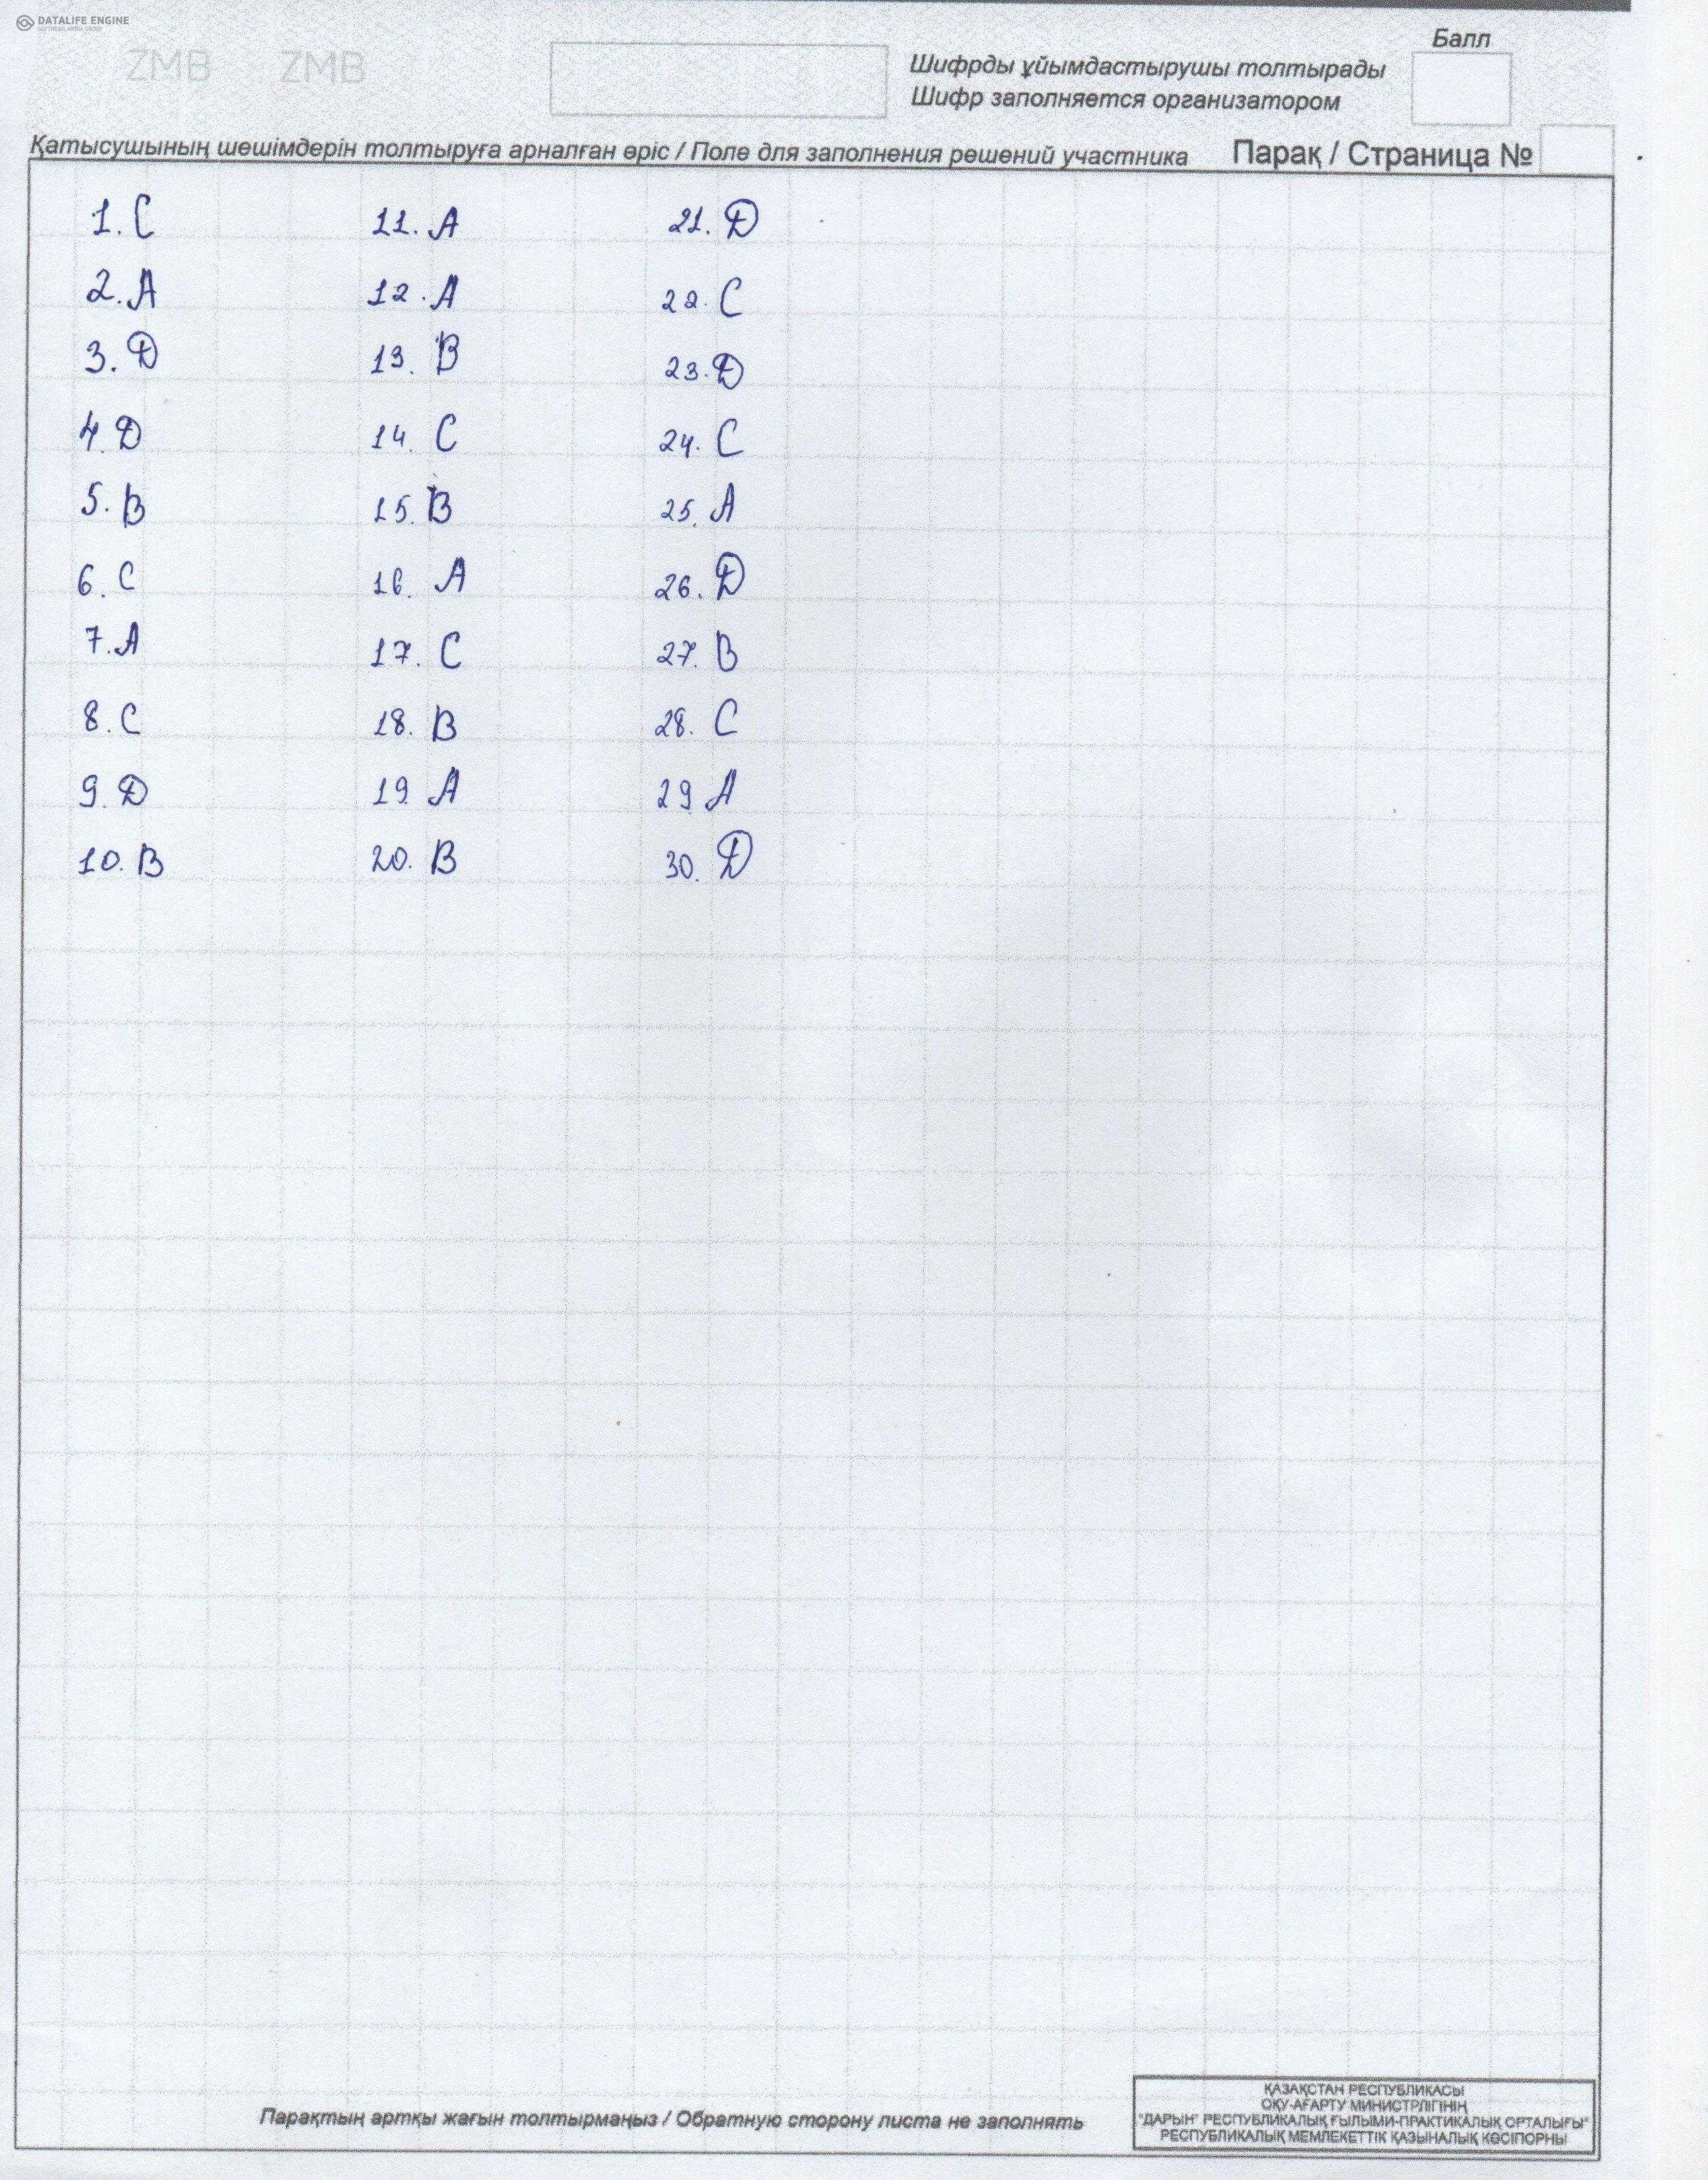 DATALIFE ENGINE
SOFTNEWS MEDIA GROUP
ZMB ZMB
Балл
Шифрды ұйымдастырушы толтырады
Шифр заполняется организатором
Қатысушының шешімдерін толтыруға арналған өріс / Поле для заполнения решений участника Парақ / Страница №
1. C
2. A
3. D
4. D
5. B
6. C
7. A
8. C
9. D
10. B
11. A
12. A
13. B
14. C
15. B
16. A
17. C
18. B
19. A
20. B
21. D
22. C
23. D
24. C
25. A
26. D
27. B
28. C
29 A
30. D
Парақтың артқы жағын толтырмаңыз / Обратную сторону листа не заполнять
ҚАЗАҚСТАН РЕСПУБЛИКАСЫ
ОҚУ-АҒАРТУ МИНИСТРЛІГІНІҢ
"ДАРЫН" РЕСПУБЛИКАЛЫҚ ҒЫЛЫМИ-ПРАКТИКАЛЫҚ ОРТАЛЫҒЫ"
РЕСПУБЛИКАЛЫҚ МЕМЛЕКЕТТІК ҚАЗЫНАЛЫҚ КӘСІПОРНЫ